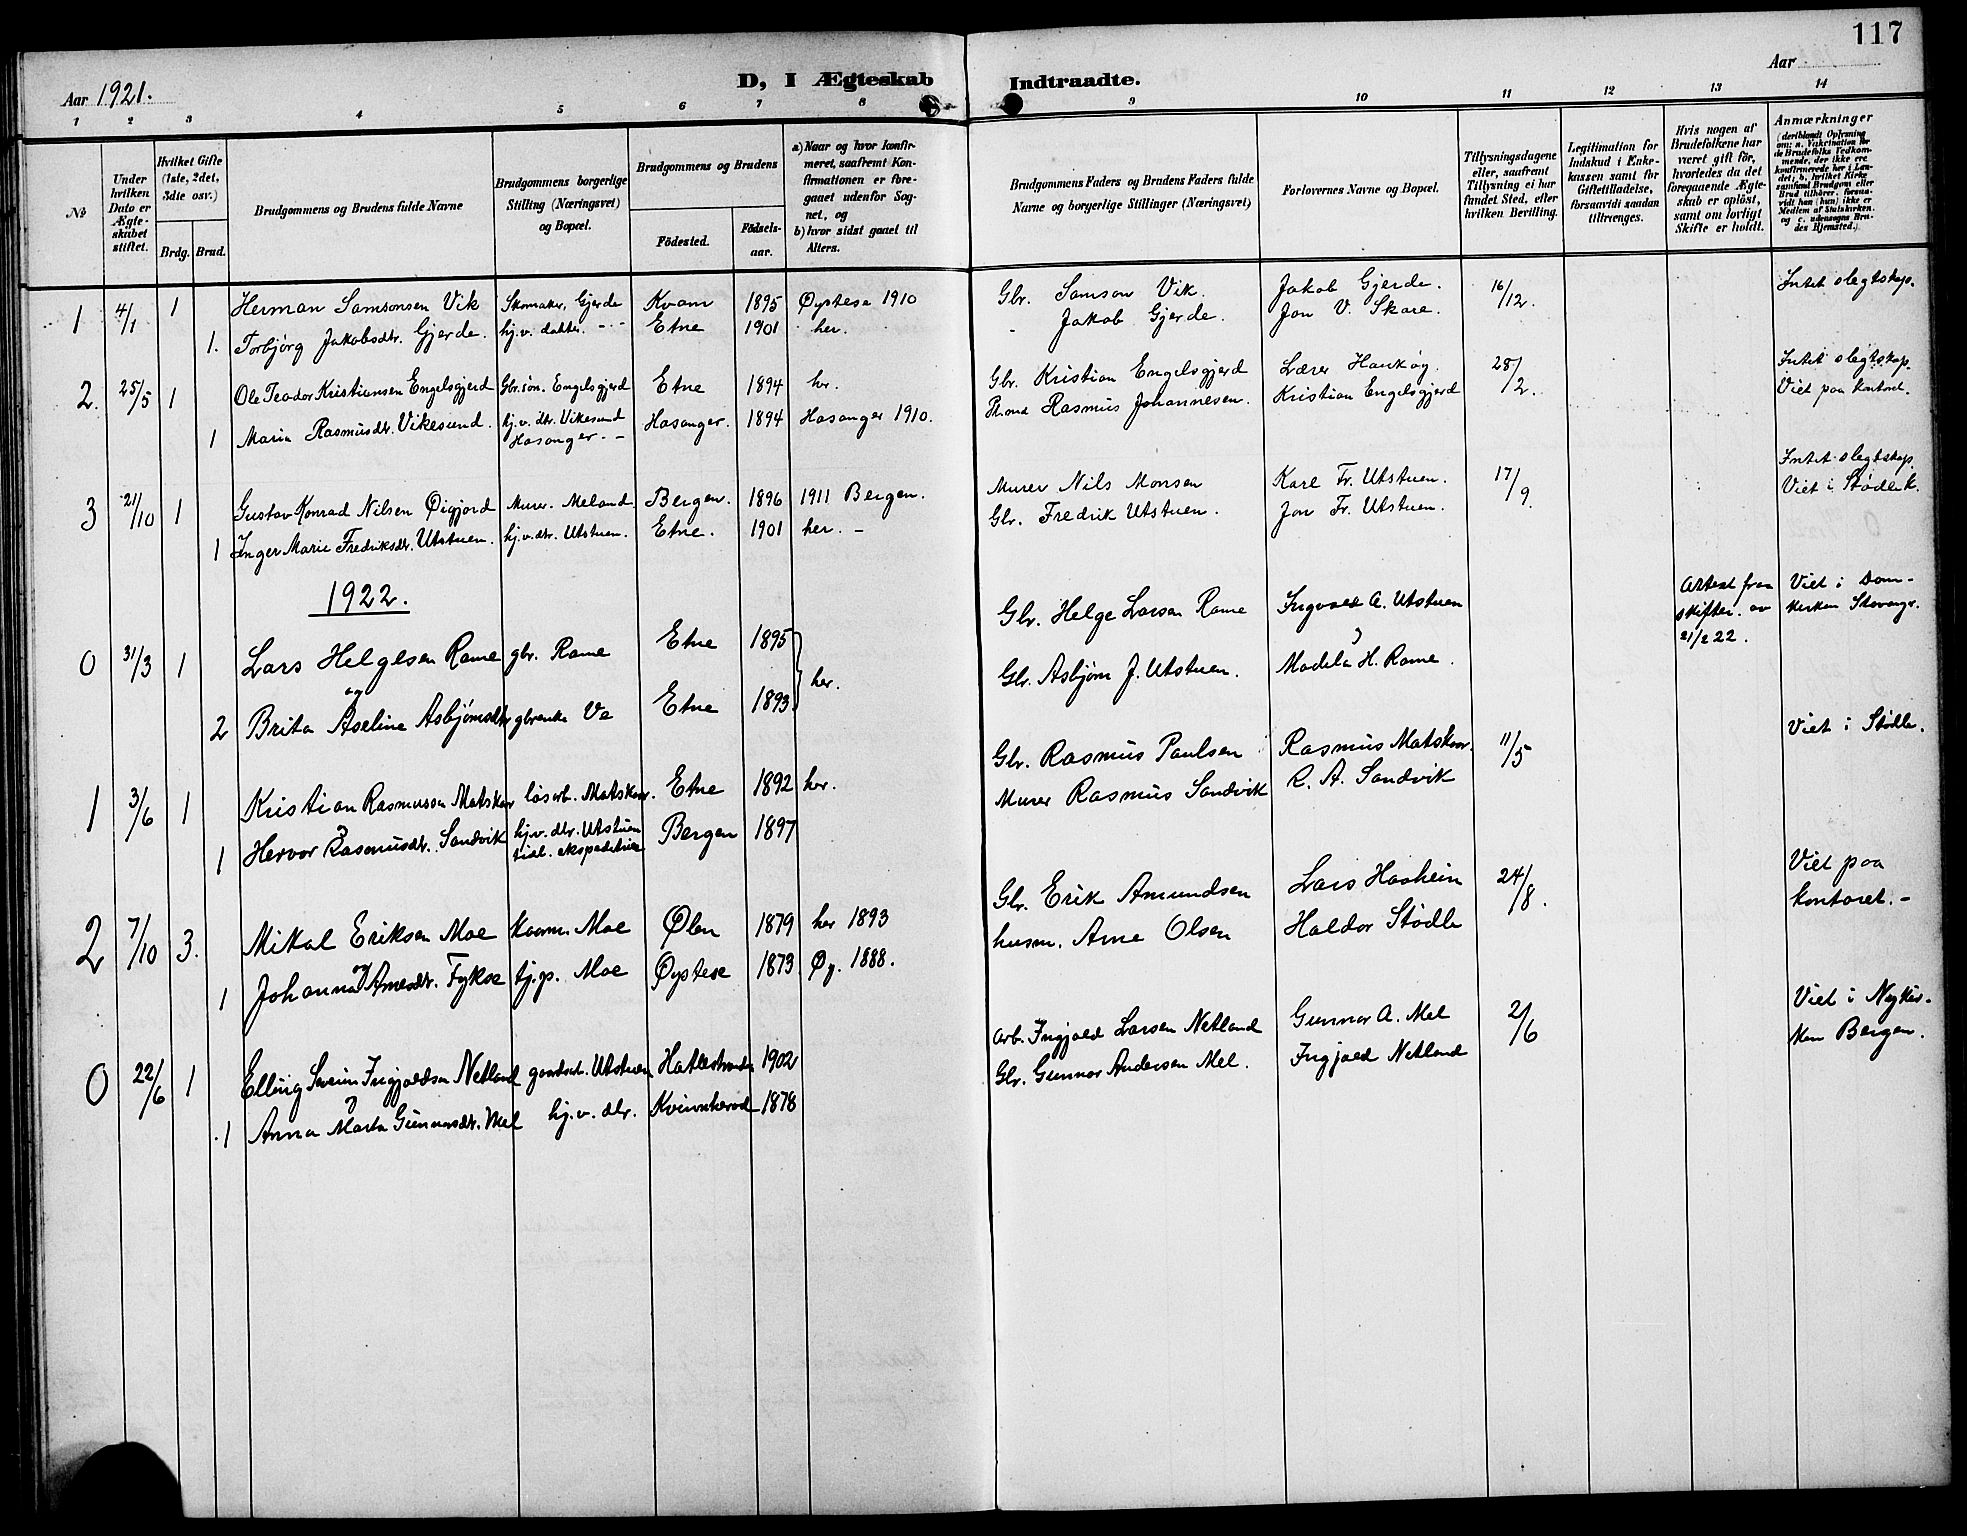 117
D, I Ægteskab Indtraadte.
Aar 1921.
Aar
1 2 3 4 5 6 7 8 9 10 11 12 13 14
№
Under hvilken Dato er Ægteskabet stiftet.
Hvilket Gifte (1ste, 2det, 3die osv.)
Brdg. Brud.
Brudgommens og Brudens fulde Navne
Brudgommens borgerlige Stilling (Næringsvei) og Bopæl.
Brudgommens og Brudens
Födested. Födselsaar.
a) Naar og hvor konfirmeret, saafremt Konfirmationen er foregaaet udenfor Sognet, og
b) hvor sidst gaaet til Alters.
Brudgommens Faders og Brudens Faders fulde Navne og borgerlige Stillinger (Næringsvei)
Forlovernes Navne og Bopæl.
Tillysningsdagene eller, saafremt Tillysning ei har fundet Sted, efter hvilken Bevilling.
Legitimation for Indskud i Enkekassen samt for Giftetilladelse, forsaavidt saadan tiltrænges.
Hvis nogen af Brudefolkene har været gift för, hvorledes da det foregaaende Ægteskab er oplöst, samt om lovligt Skifte er holdt.
Anmærkninger (deriblandt Oplysning om: a. Vakcination for de Brudefolks Vedkommende, der ikke ere konfirmerede her i Landet; b. hvilket Kirkesamfund Brudgom eller Brud tilhører, forsaavidt han (hun) ikke er Medlem af Statskirken, og c. udensogns Brudes Hjemsted.)
1 4/1 1 Herman Samsonsen Vik Skomaker, Gjerde Kvam 1895 Øystese 1910 Gbr. Samson Vik. Jakob Gjerde. 16/12. Intet slegtskap.
1. Torbjørg Jakobsdtr. Gjerde. hj.v. datter. - - Etne 1901 her. - Jakob Gjerde. Jon V. Skare.
2. 25/5 1 Ole Teodor Kristiansen Engelsgjerd Gbr.søn. Engelsgjerd Etne 1894 her. Gbr. Kristian Engelsgjerd Lærer Haukøy 28/2. Intet slegtskap. Viet paa kontoret.
1 Maria Rasmusdtr. Vikesund. hj.v. dtr. Vikesund Hosanger. - Hosanger. 1894 Hosanger 1910. Rasmus Johannesen. Kristian Engelsgjerd
3 21/10 1 Gustav Konrad Nilsen Øigjord Murer. Meland Bergen. 1896 1911 Bergen. Murer Nils Monsen Karl Fr. Utstuen. 17/9. Intet slegtskap. Viet i Stødle k.
1 Inger Marie Fredriksdtr. Utstuen. hj.v.dtr. Utstuen. Etne. 1901 her. - Gbr. Fredrik Utstuen. Jon Fr. Utstuen.
1922.
0 31/3 1 Lars Helgesen Rame gbr. Rame Etne 1895 her. Gbr. Helge Larsen Rame Ingvald A. Utstuen Attest fraa skifter. av 21/2 22. Viet i Domkirken Stavanger.
og
2 Brita Aseline Asbjørnsdtr gbrenke Ve Etne 1893 Gbr. Asbjørn J. Utstuen. Madela H. Rame.
1 3/6 1 Kristian Rasmusson Matskor løsarb. Matskor. Etne 1892 her. Gbr. Rasmus Paulsen Rasmus Matskor. 11/5 Viet i Stødle.
1 Hervor Rasmusdtr. Sandvik hj.v. dtr. Utstuen tidl. ekspeditrise Bergen 1897 Murer Rasmus Sandvik R. A. Sandvik
2 7/10 3. Mikal Eriksen Moe Kaarm. Moe Ølen 1879 her 1893 Gbr. Erik Amundsen Lars Haaheim 24/8. Viet paa kontoret. -
og
1 Johanna Arnesdtr. Fykse tj.p. Moe Øystese 1873 Øy. 1888. husm. Arne Olsen Haldor Stødle
0 22/6 1 Elling Severin Ingjaldsen Netland gaardsat. Utstuen Hatlestranden 1902 arb. Ingjald Larsen Netland Gunnar A. Mel 2/6 Viet i Nykirken Bergen.
1 Anna Marta Gunnarsdtr. Mel hj.v. dtr. Kvinnherad 1878 Gbr. Gunnar Andersen Mel. Ingjald Netland